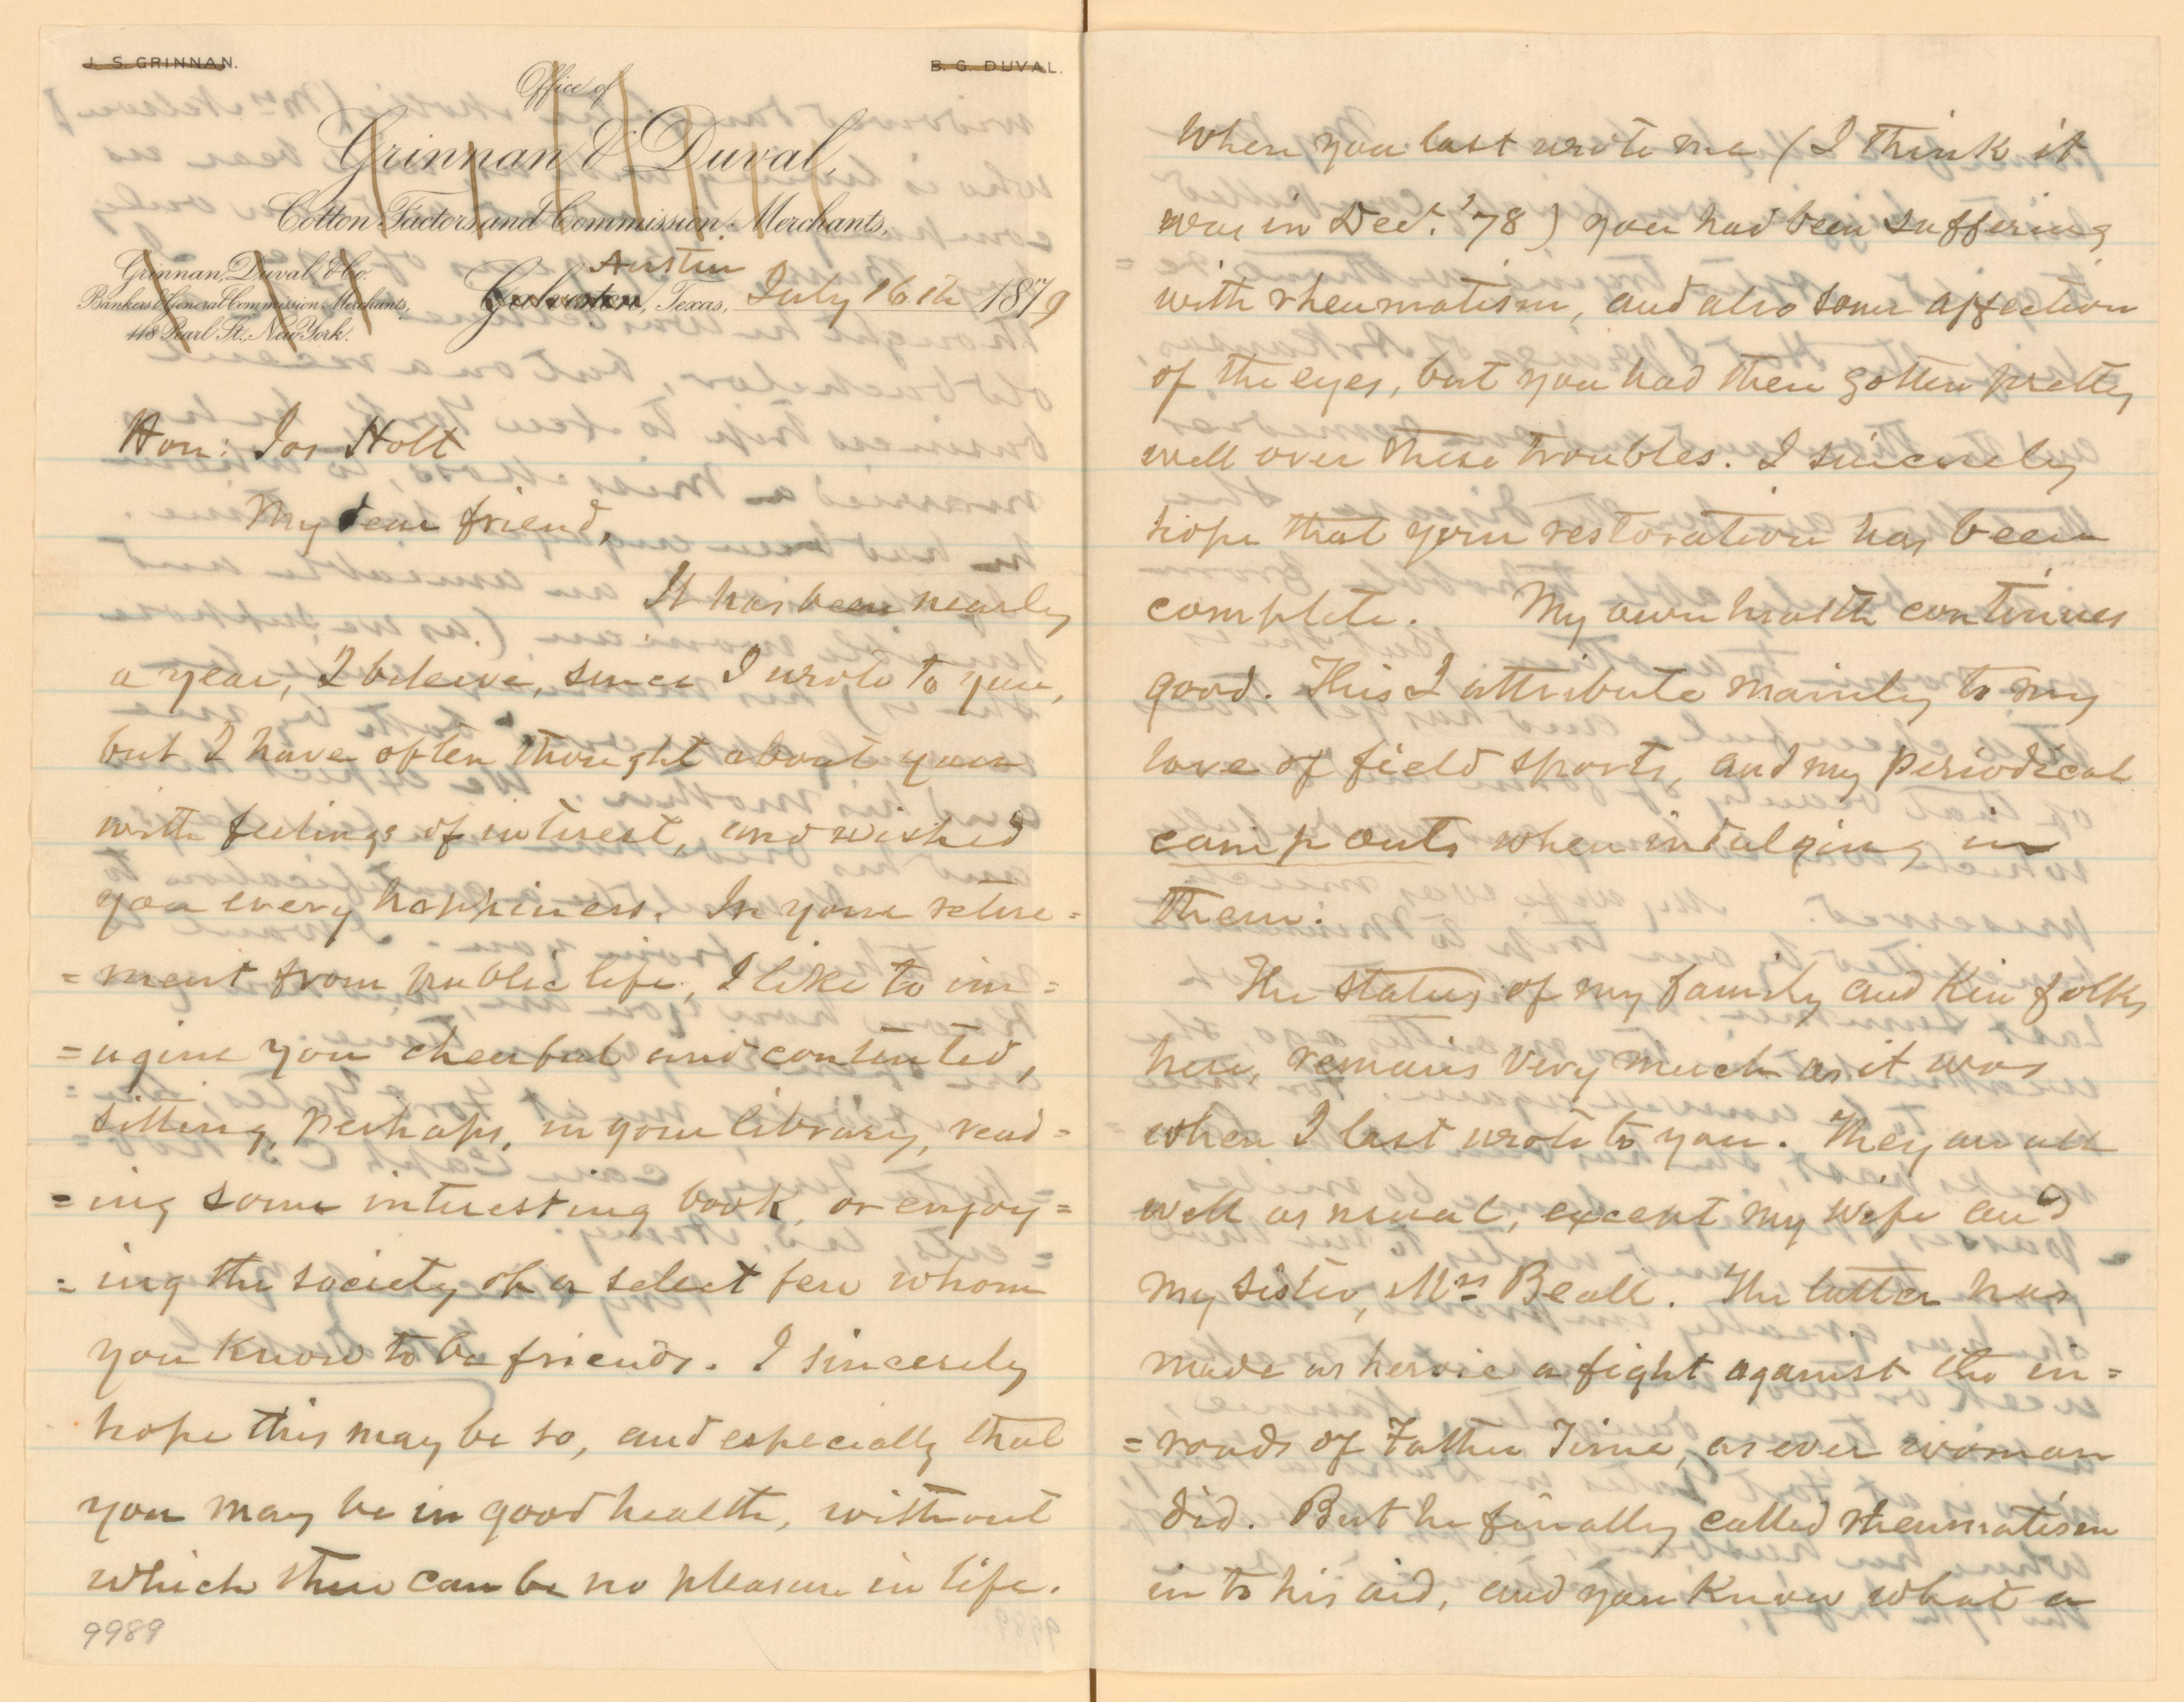 J. S. GRINNAN.
B. G. DUVAL.
Office of
Grinnan & Duval,
Cotton Factors and Commission Merchants,
Grinnan, Duval & Co.
Bankers & General Commission Merchants,
118 Pearl St., New York.
Austin
Galveston, Texas, July 16th 1879
Hon: Jos Holt
My dear friend,
It has been nearly
a year, I beleive, since I wrote to you,
but I have often thought about you
with feelings of interest, and wished
you every happiness. In your retire=
=ment from public life, I like to im=
=agine you cheerful and contented,
sitting, perhaps, in your library, read=
=ing some interesting book, or enjoy=
=ing the society of a select few whom
you know to be friends. I sincerely
hope this may be so, and especially that
you may be in good health, without
which there can be no pleasure in life.
9989
When you last wrote me (I think it
was in Dec. '78) you had been suffering
with rheumatism, and also some affection
of the eyes, but you had then gotten pretty
well over these troubles. I sincerely
hope that your restoration has been
complete. My own health continues
good. This I attribute mainly to my
love of field sports, and my periodical
camp outs when indulging in
them.
The status of my family and Kin folks
here, remains very much as it was
when I last wrote to you. They are all
well as usual, except my wife and
my sister, Mrs Beall. The latter has
made as heroic a fight against the in=
=roads of Father Time, as ever woman
did. But he finally called rheumatism
in to his aid, and you know what a